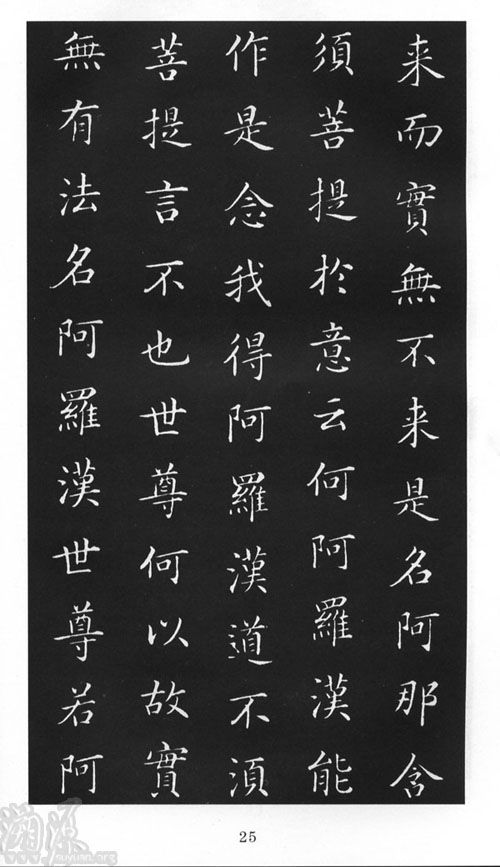 来而實無不来是名阿那含
須菩提扵意云何阿羅漢能
作是念我得阿羅漢道不須
菩提言不也世尊何以故實
無有法名阿羅漢世尊若阿
25
suyuan.org